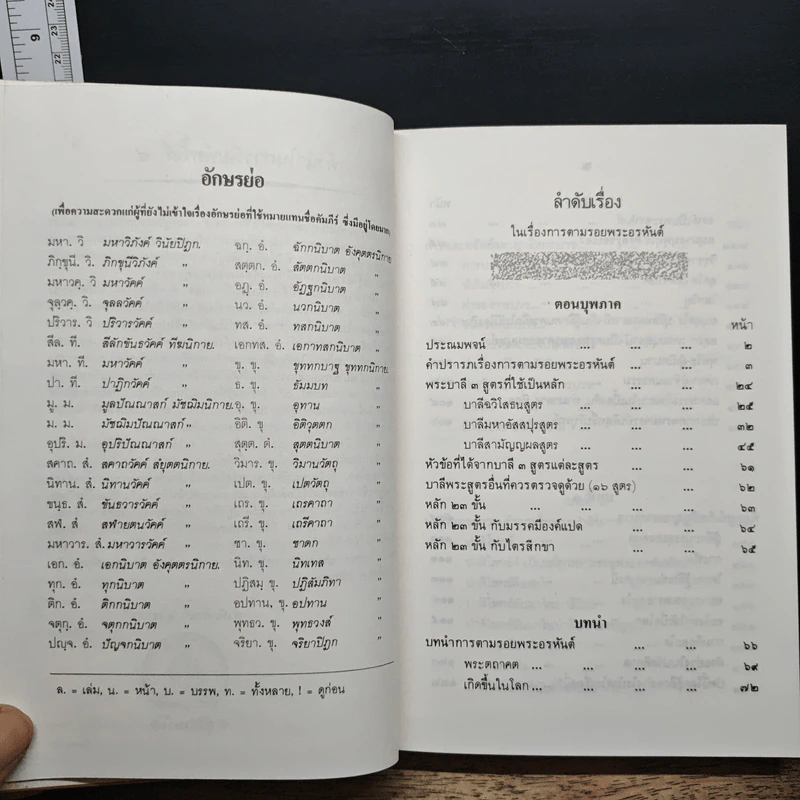 อักษรย่อ
(เพื่อความสะดวกแก่ผู้ที่ยังไม่เข้าใจเรื่องอักษรย่อที่ใช้หมายแทนชื่อคัมภีร์ ซึ่งมีอยู่โดยมาก)
มหา. วิ มหาวิภังค์ วินัยปิฎก. ฉกฺ. อํ. ฉักกนิบาต อังคุตตรนิกาย.
ภิกฺขุนี. วิ. ภิกขุนีวิภังค์ " สตฺตก. อํ. สัตตกนิบาต "
มหาวคฺ. วิ มหาวัคค์ " อฏฺ. อํ. อัฏฐกนิบาต "
จุลฺวคฺ. วิ. จุลลวัคค์ " นว. อํ. นวกนิบาต "
ปริวาร. วิ ปริวารวัคค์ " ทส. อํ. ทสกนิบาต "
สีล. ที. สีลักขันธวัคค์ ทีฆนิกาย. เอกาทส. อํ. เอกาทสกนิบาต "
มหา. ที. มหาวัคค์ " ขุ. ขุ. ขุททกบาฐ ขุททกนิกาย.
ปา. ที. ปาฏิกวัคค์ " ธ. ขุ. ธัมมบท "
มู. ม. มูลปัณณาสก์ มัชฌิมนิกาย. อุ. ขุ. อุทาน "
ม. ม. มัชฌิมปัณณาสก์ " อิติ. ขุ อิติวุตตก "
อุปริ. ม. อุปริปัณณาสก์ " สุตฺต. ขุ. สุตตนิบาต "
สคาถ. สํ. สคาถวัคค์ สังยุตตนิกาย. วิมาน. ขุ. วิมานวัตถุ "
นิทาน. สํ. นิทานวัคค์ " เปต. ขุ. เปตวัตถุ "
ขนฺธ. สํ. ขันธวารวัคค์ " เถร. ขุ. เถรคาถา "
สฬ. สํ สฬายตนวัคค์ " เถรี. ขุ. เถรีคาถา "
มหาวาร. สํ. มหาวารวัคค์ " ชา. ขุ. ชาดก "
เอก. อํ. เอกนิบาต อังคุตตรนิกาย. นิท. ขุ. นิทเทส "
ทุก. อํ. ทุกนิบาต " ปฏิสมฺ. ขุ. ปฏิสัมภิทา "
ติก. อํ. ติกกนิบาต " อปทาน. ขุ. อปทาน "
จตุกฺ. อํ. จตุกกนิบาต " พุทฺธว. ขุ. พุทธวงส์ "
ปญฺจ. อํ. ปัญจกนิบาต " จริยา. ขุ. จริยาปิฎก "
ล. = เล่ม, น. = หน้า, บ. = บรรพ, ท. = ทั้งหลาย, ! = ดูก่อน
ลำดับเรื่อง
ในเรื่องการตามรอยพระอรหันต์
ตอนบุพภาค
หน้า
ประณมพจน์ ... ... ... ๒
คำปรารภเรื่องการตามรอยพระอรหันต์ ... ... ๓
พระบาลี ๓ สูตรที่ใช้เป็นหลัก ... ... ๒๔
บาลีฉวิโสธนสูตร ... ... ... ๒๕
บาลีมหาอัสสปุรสูตร ... ... ... ๓๒
บาลีสามัญญผลสูตร ... ... ... ๔๕
หัวข้อที่ได้จากบาลี ๓ สูตรแต่ละสูตร ... ... ๖๑
บาลีพระสูตรอื่นที่ควรตรวจดูด้วย (๑๖ สูตร) ... ๖๒
หลัก ๒๓ ขั้น ... ... ... ... ๖๓
หลัก ๒๓ ขั้น กับมรรคมีองค์แปด ... ... ๖๔
หลัก ๒๓ ขั้น กับไตรสิกขา ... ... ๖๕
บทนำ
บทนำการตามรอยพระอรหันต์ ... ... ๖๖
พระตถาคต ... ... ... ๖๙
เกิดขึ้นในโลก ... ... ... ๗๒
9
24
23
22